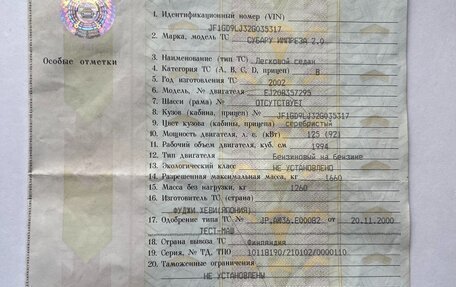 1. Идентификационный номер (VIN)
JF1GD9LJ32G035317
2. Марка, модель ТС СУБАРУ ИМПРЕЗА 2.0
Особые отметки
3. Наименование (тип ТС) Легковой седан
4. Категория ТС (А, В, С, D, прицеп) В
5. Год изготовления ТС 2002
6. Модель, № двигателя EJ20B357295
7. Шасси (рама) № ОТСУТСТВУЕТ
8. Кузов (кабина, прицеп) № JF1GD9LJ32G035317
9. Цвет кузова (кабины, прицепа) серебристый
10. Мощность двигателя, л. с. (кВт) 125 (92)
11. Рабочий объем двигателя, куб. см 1994
12. Тип двигателя Бензиновый на бензине
13. Экологический класс НЕ УСТАНОВЛЕНО
14. Разрешенная максимальная масса, кг 1660
15. Масса без нагрузки, кг 1260
16. Изготовитель ТС (страна)
ФУДЖИ ХЕВИ(ЯПОНИЯ)
17. Одобрение типа ТС № JP.АЮ36.Е00082 от 20.11.2000
ТЕСТ-МАШ
18. Страна вывоза ТС Финляндия
19. Серия, № ТД, ТПО 10118190/210102/0000110
20. Таможенные ограничения
НЕ УСТАНОВЛЕНЫ